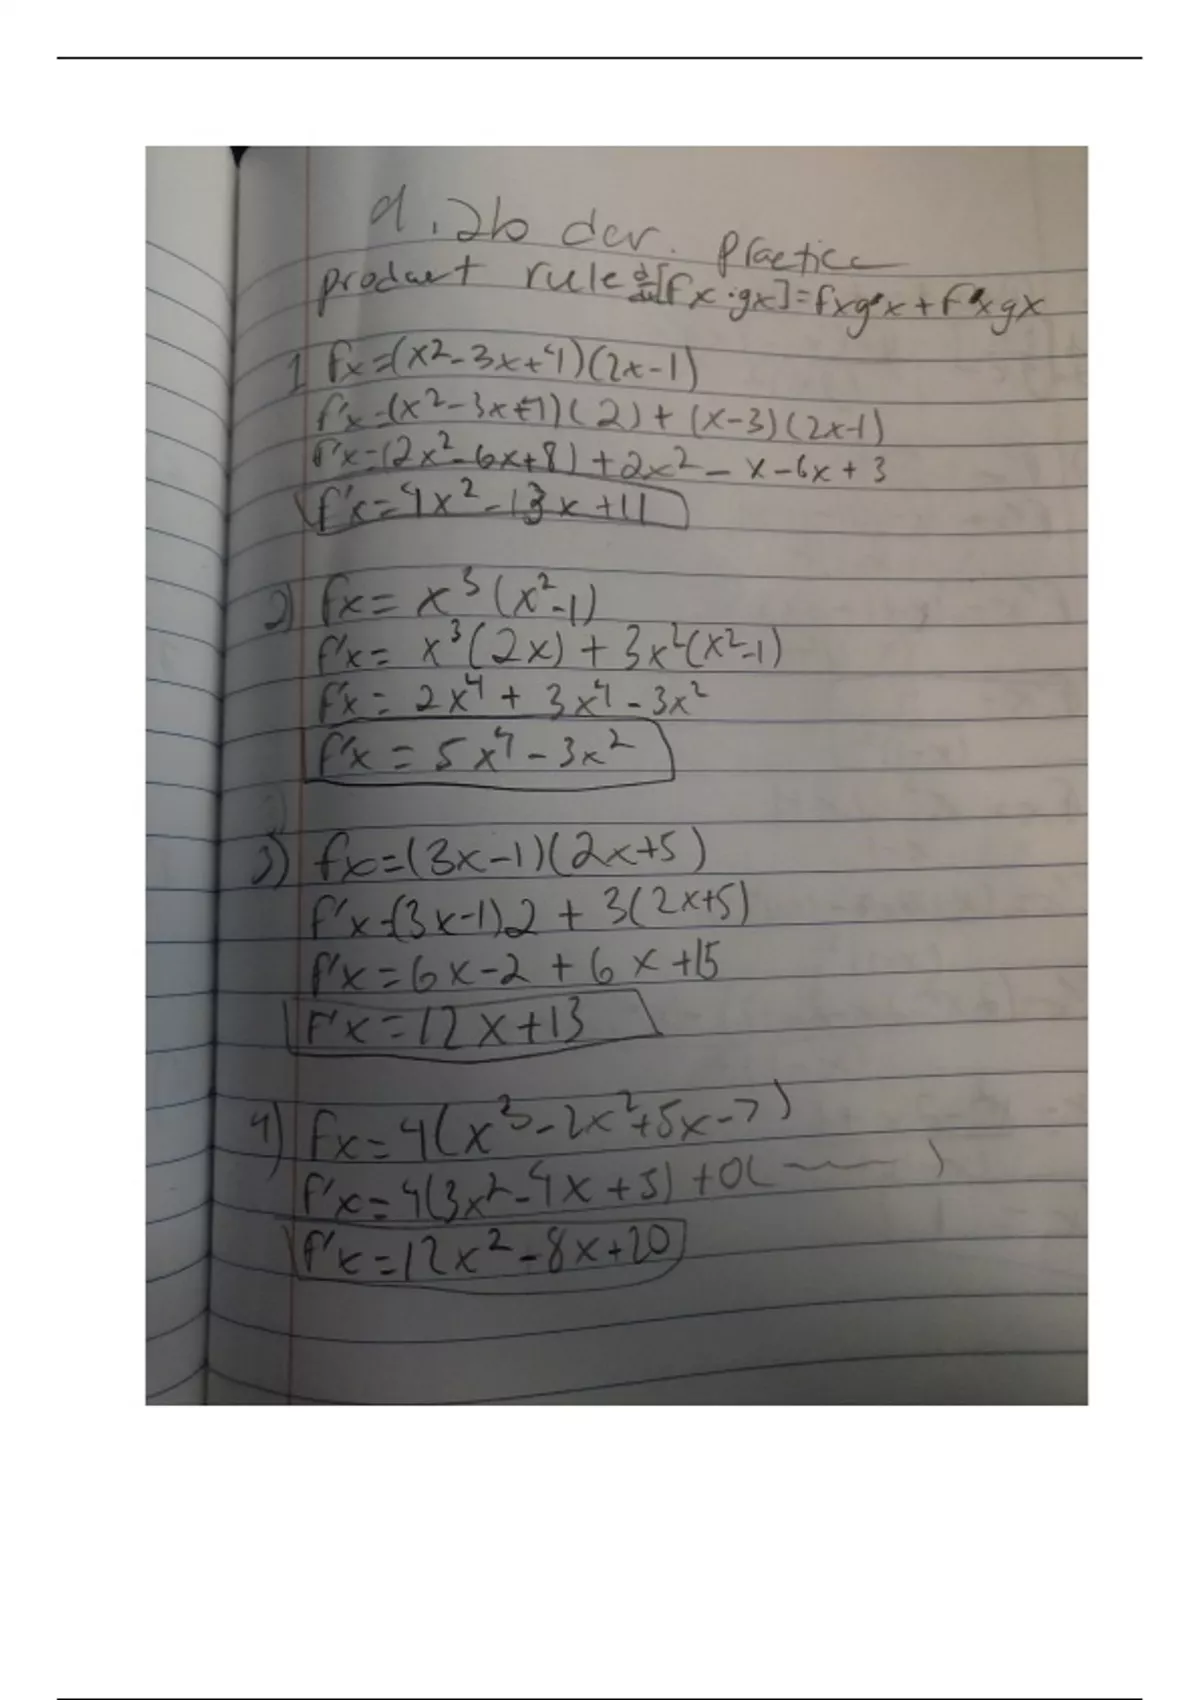 d.2b der. Practice
product rule d/dx[fx·gx]=fxg'x+f'xgx
1 fx=(x²-3x+4)(2x-1)
f'x=(x²-3x+4)(2)+(x-3)(2x-1)
f'x=(2x²-6x+8)+2x²-x-6x+3
f'x=4x²-13x+11
2) fx=x³(x²-1)
f'x=x³(2x)+3x²(x²-1)
f'x=2x⁴+3x⁴-3x²
f'x=5x⁴-3x²
3) fx=(3x-1)(2x+5)
f'x=(3x-1)2+3(2x+5)
f'x=6x-2+6x+15
f'x=12x+13
4) fx=4(x³-2x²+5x-7)
f'x=4(3x²-4x+5)+0( )
f'x=12x²-8x+20